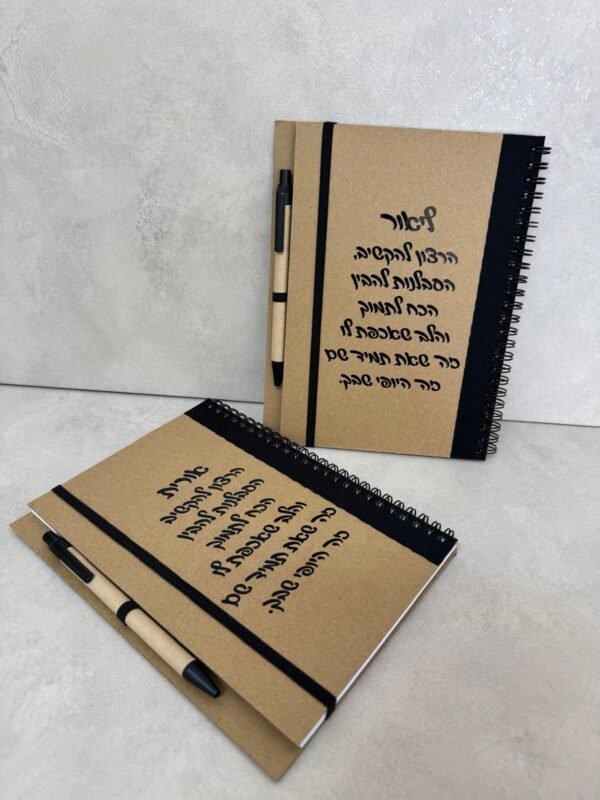 ליאור
הרצון להקשיב,
הסבלנות להבין
הכח לתמוך
והלב שאכפת לו
זה שאת תמיד שם
זה היופי שבך.
אורית
הרצון להקשיב,
הסבלנות להבין
הכח לתמוך
והלב שאכפת לו
זה שאת תמיד שם
זה היופי שבך.